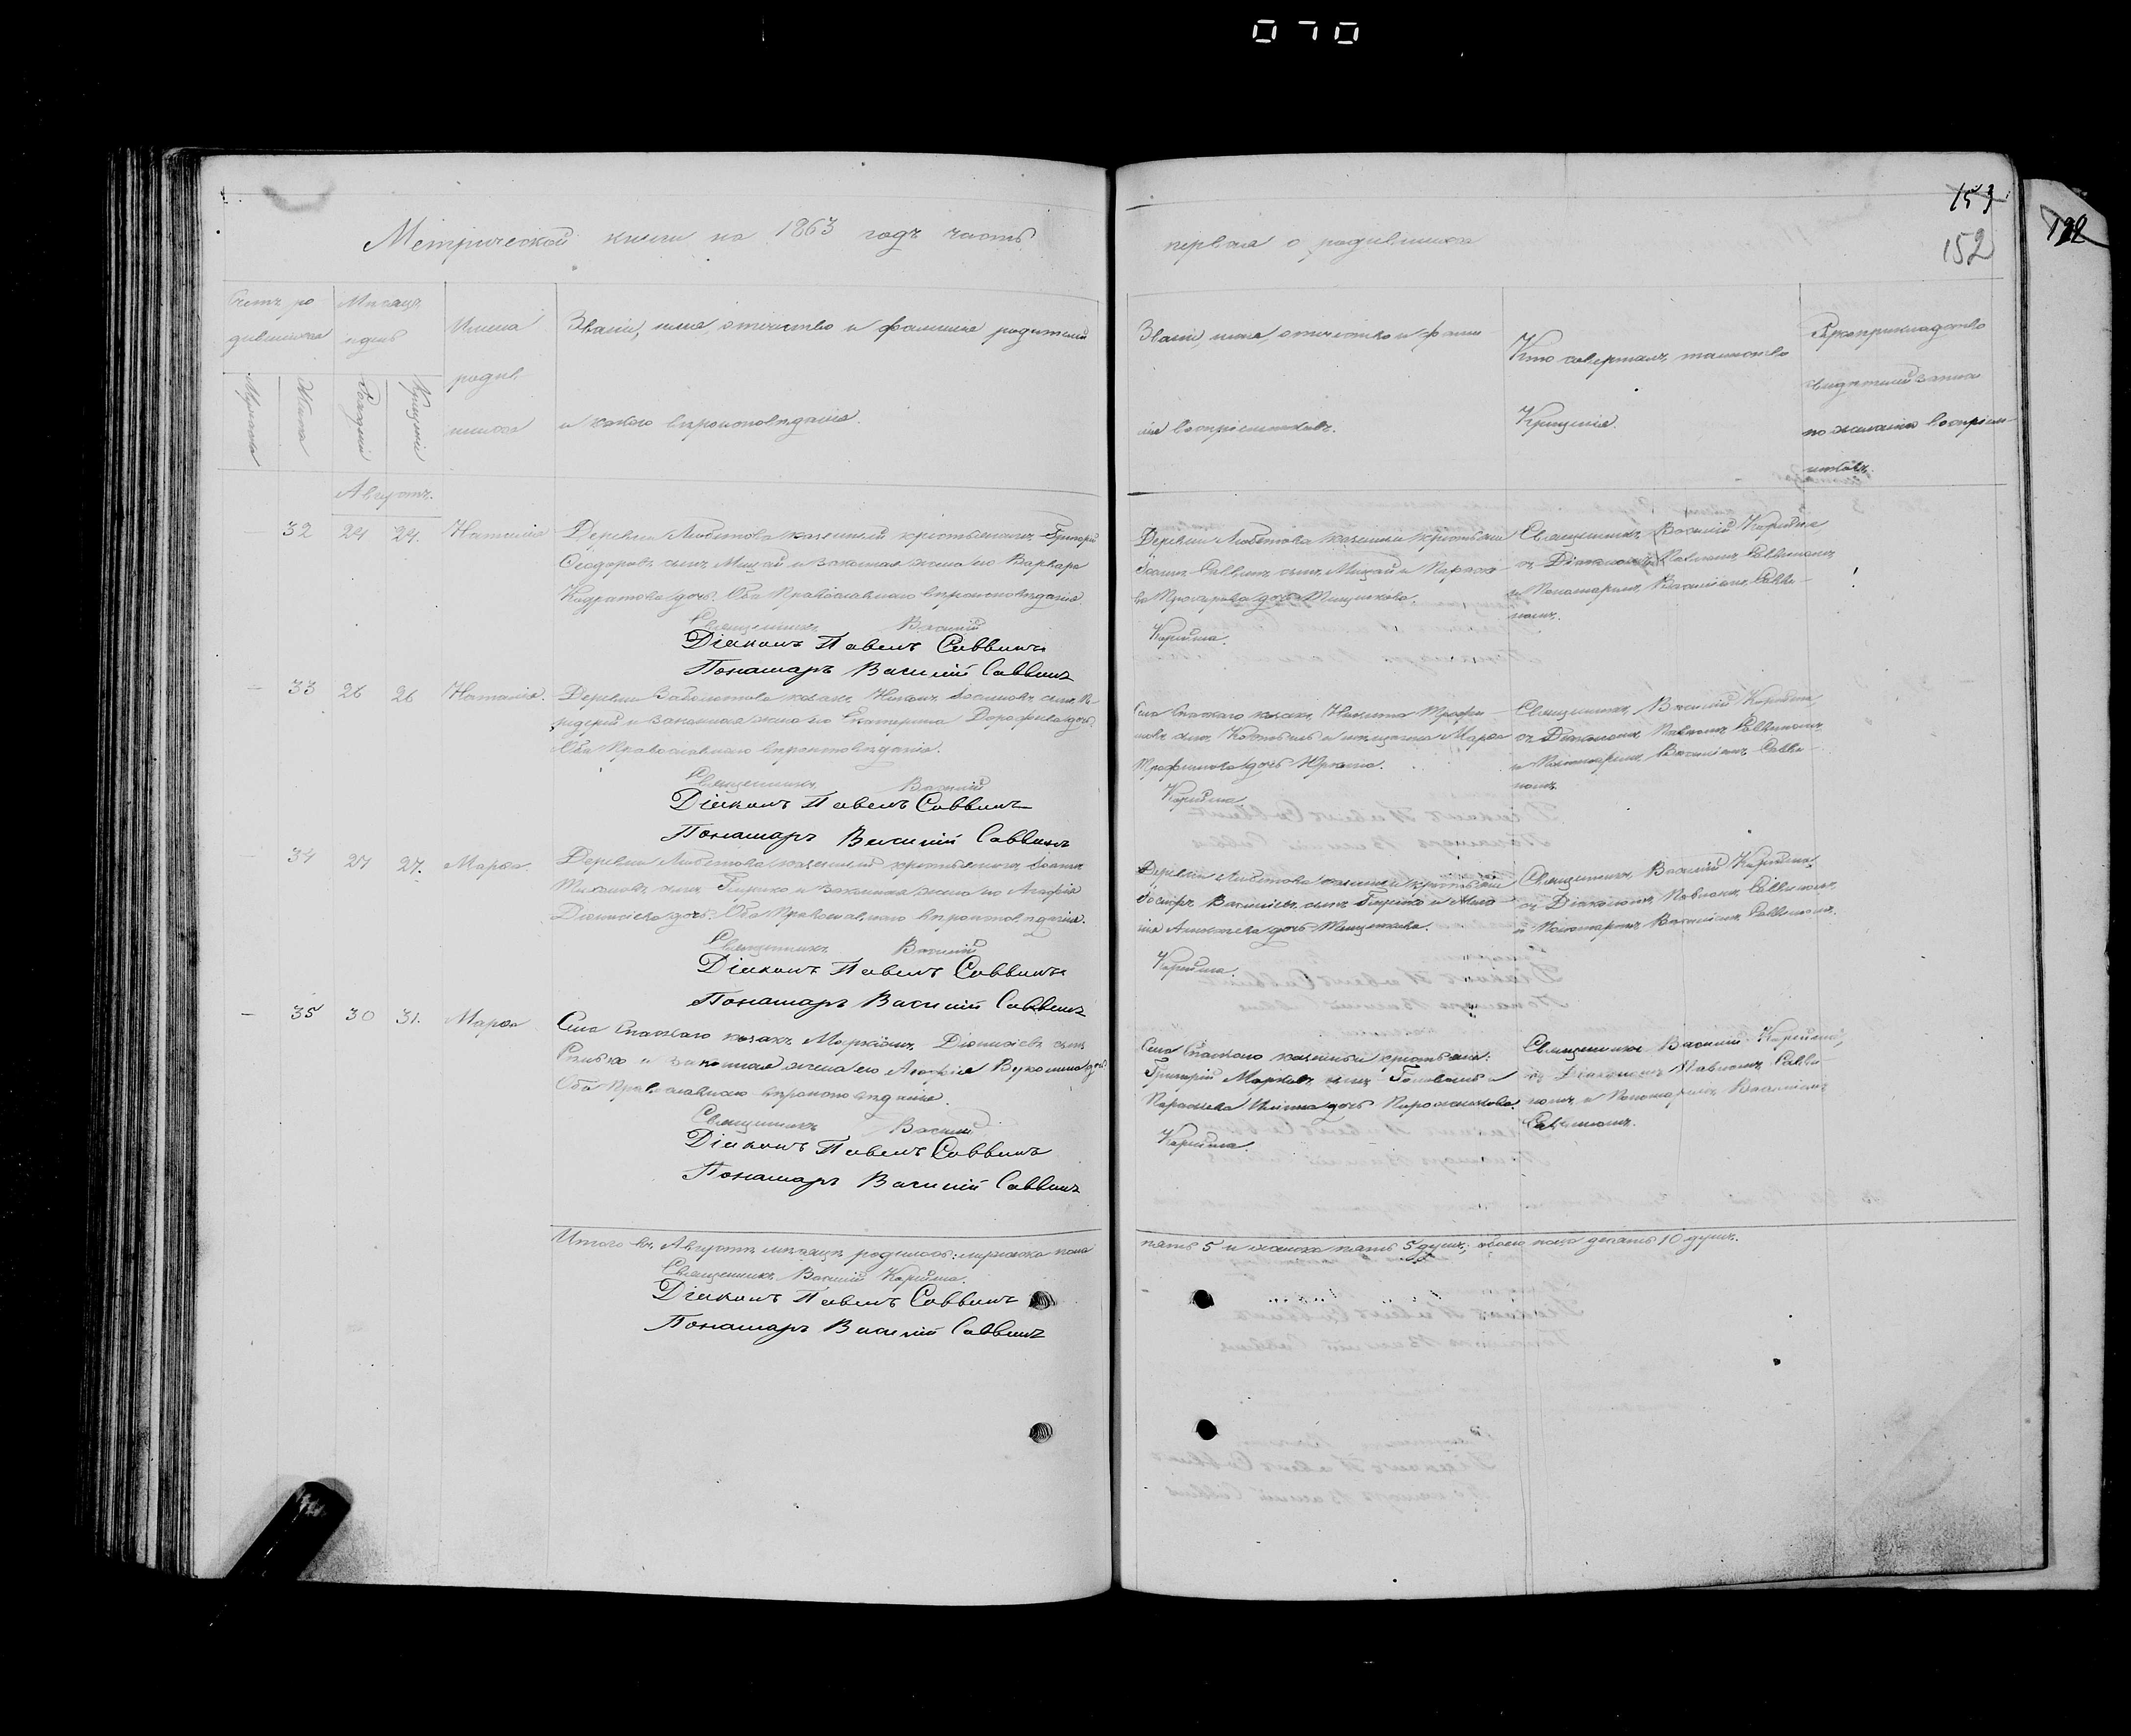 070
153
152
122
Метрической книги на 1863 годъ часть
первая о родившихся
Счетъ ро
дившихся
Мужеска
Женска
Месяцъ
и день
Рожденія
Крещенія
Имена
родив
шихся
Званіе, имя отчество и фамилія родителей
и какого вѣроисповѣданія.
Званіе, имя, отчество и фами
лія воспріемниковъ.
Кто совершалъ таинство
Крещенія.
Рукоприкладство
свидетелей записи
по желанію
Августъ.
— 32 24 24. Наталія
Деревни Любитова казенный крестьянинъ Григорій
Феодоровъ сынъ Мицай и законная жена его Варвара
Кодратова дочь. Оба Православнаго вѣроисповѣданія.
Священникъ Василій
Діаконъ Павелъ Саввинъ
Понамаръ Василій Саввинъ
Деревни Любитова казенный крестьян
Іоаннъ Саввинъ сынъ Мицай и Параске
ва дочь Тищенкова.
Карпина.
Священникъ Василій Карпина,
съ Діакономъ Павломъ Саввиномъ
и Пономаремъ Василіемъ Савви
номъ.
— 33 26 26 Наталія.
Деревни казакъ сынъ
и законная жена его Екатерина Дорофеева дочь
Оба Православнаго вѣроисповѣданія.
Священникъ Василій
Діаконъ Павелъ Саввинъ
Понамаръ Василій Саввинъ
Села Спаского казакъ Никита Трофи
мовъ сынъ и Марфа
Трофимова дочь
Карпина
Священникъ Василій Карпина,
съ Діакономъ Павломъ Саввиномъ
и Пономаремъ Василіемъ Савви
номъ.
— 34 27 27. Марфа.
Деревни Любитова казенный крестьянинъ Іоаннъ
сынъ и законная жена его Агафія
Діонисіева дочь. Оба Православнаго вѣроисповѣданія.
Священникъ Василій
Діаконъ Павелъ Саввинъ
Понамаръ Василій Саввинъ
Деревни Любитова казенный крестьян
Іосифъ Васильевъ сынъ и
дочь Тищенкова.
Карпина.
Священникъ Василій Карпина,
съ Діакономъ Павломъ Саввиномъ,
и Пономаремъ Василіемъ Саввиномъ.
— 35 30 31. Марфа
Села Спаского казакъ Маркіанъ Діонисіевъ сынъ
и законная жена его Агафія Вуколина дочь
Оба Православнаго вѣроисповѣданія.
Священникъ Василій
Діаконъ Павелъ Саввинъ
Понамаръ Василій Саввинъ
Села Спаского казенный крестьян:
Григорій Марковъ сынъ и
Параскева дочь
Карпина.
Священникъ Василій Карпина,
съ Діакономъ Павломъ Савви
номъ и Пономаремъ Василіемъ
Саввиномъ.
Итого въ Августѣ месяцѣ родилось: мужеска пола
пять 5 и женска пять 5 душъ; обоего пола десять 10 душъ.
Священникъ Василій Карпина.
Діаконъ Павелъ Саввинъ
Понамаръ Василій Саввинъ